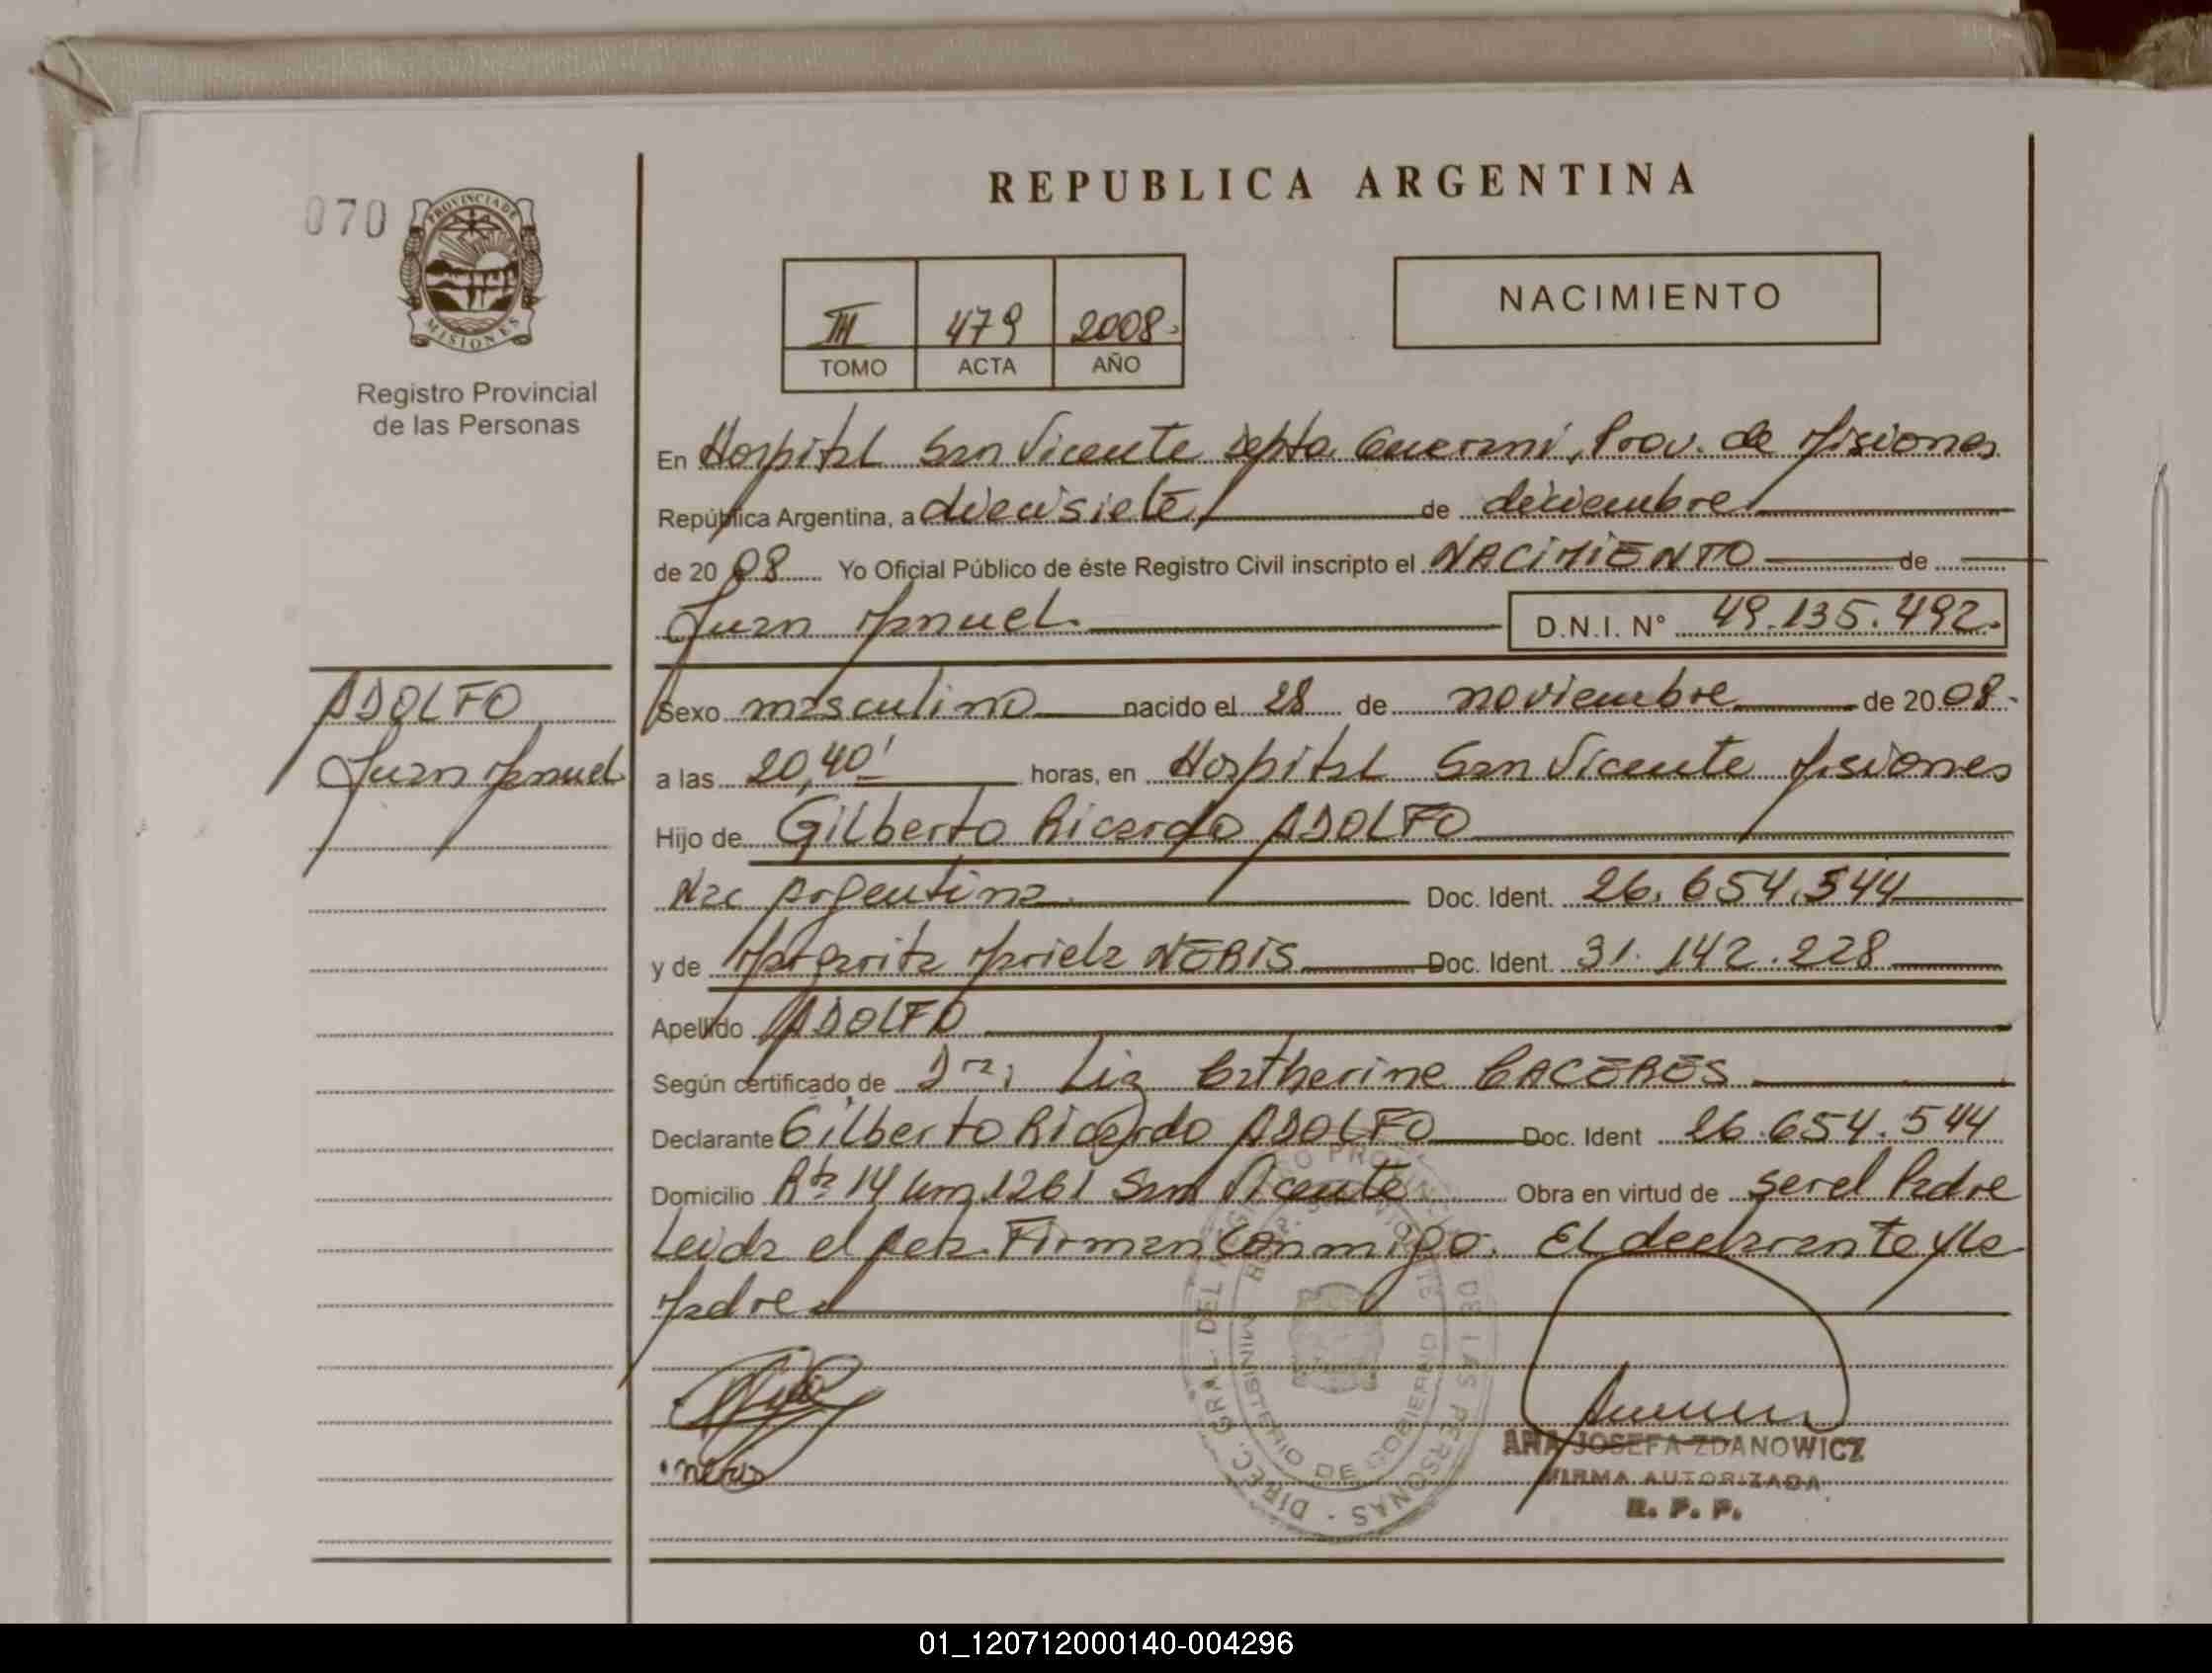 REPUBLICA ARGENTINA
070
PROVINCIA DE
MISIONES
Registro Provincial
de las Personas
III 479 2008
TOMO ACTA AÑO
NACIMIENTO
En Hospital San Vicente Depto. Guarani, Prov. de Misiones
República Argentina, a diecisiete de diciembre
de 2008 Yo Oficial Público de éste Registro Civil inscripto el NACIMIENTO de
Juan Manuel D.N.I. N° 49.135.492.
ADOLFO
Juan Manuel
Sexo masculino nacido el 28 de noviembre de 2008.
a las 20,40' horas, en Hospital San Vicente Misiones
Hijo de Gilberto Ricardo ADOLFO
Nac Argentina Doc. Ident. 26.654.544
y de Margarita Mariela NERIS Doc. Ident. 31.142.228
Apellido ADOLFO
Según certificado de Dra; Liz Catherine CACERES
Declarante Gilberto Ricardo ADOLFO Doc. Ident 26.654.544
Domicilio Rta 14 km 1261 San Vicente Obra en virtud de ser el Padre
Leida el Acta. Firman conmigo. El declarante y la
Madre
neris
ANA JOSEFA ZDANOWICZ
FIRMA AUTORIZADA
R. P. P.
01_120712000140-004296